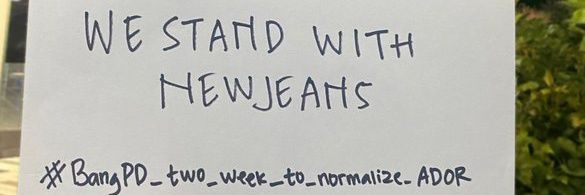 WE STAND WITH
NEWJEANS
#BangPD_two_week_to_normalize_ADOR